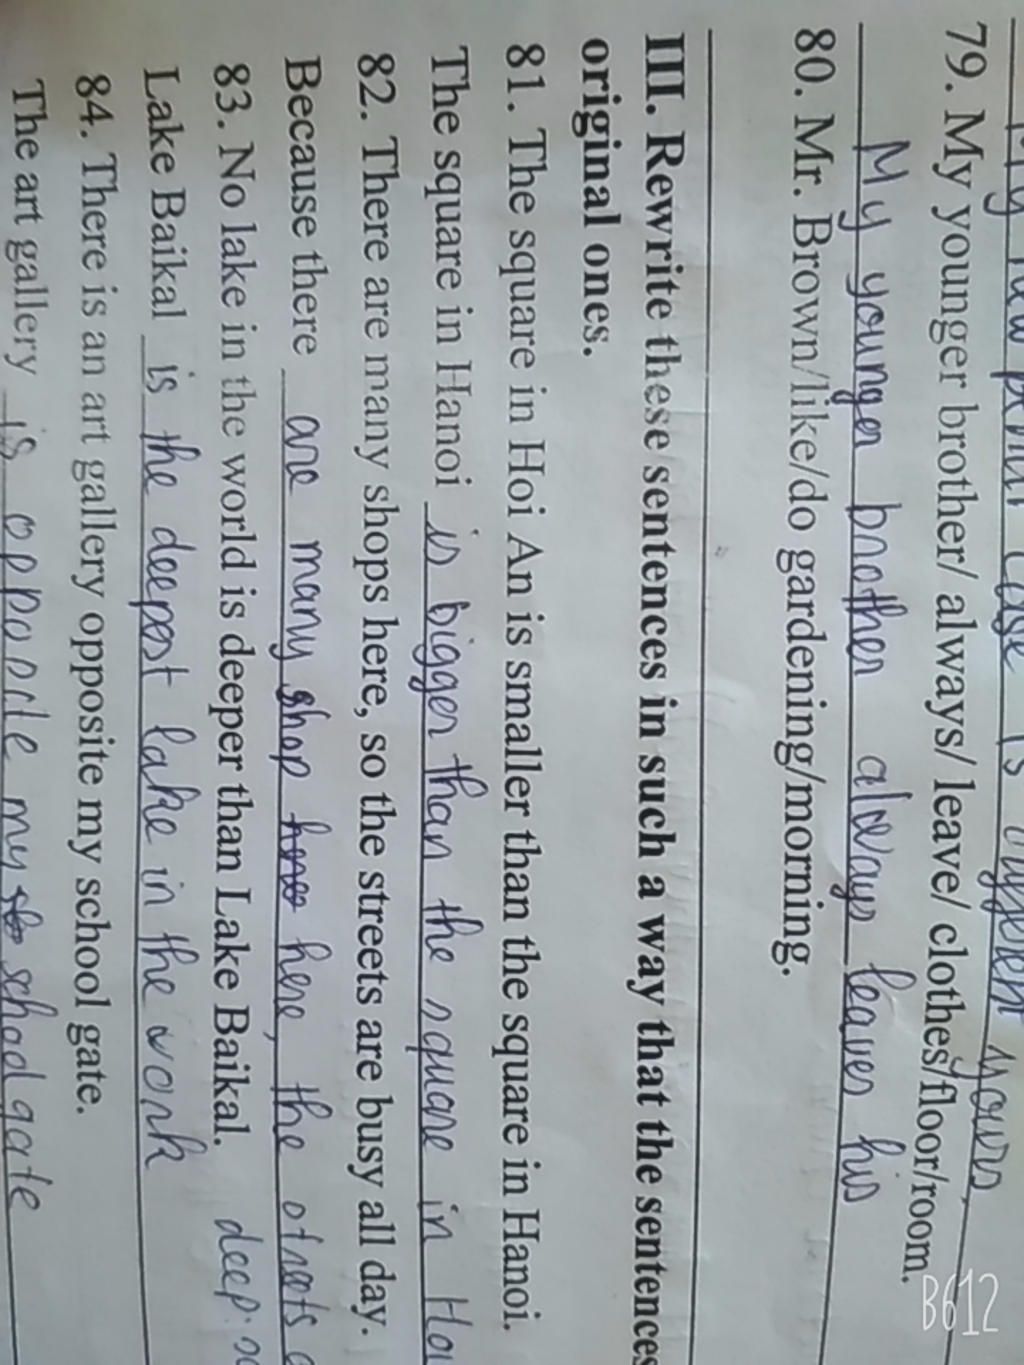 is different yours,
79. My younger brother/ always/ leave/ clothes/floor/room.
My younger brother always leaves his
80. Mr. Brown/like/do gardening/morning.
III. Rewrite these sentences in such a way that the sentences
original ones.
81. The square in Hoi An is smaller than the square in Hanoi.
The square in Hanoi is bigger than the square in Hoi
82. There are many shops here, so the streets are busy all day.
Because there are many shop here, the streets
83. No lake in the world is deeper than Lake Baikal. deep.
Lake Baikal is the deepest lake in the work
84. There is an art gallery opposite my school gate.
The art gallery is opposite my school gate
B612